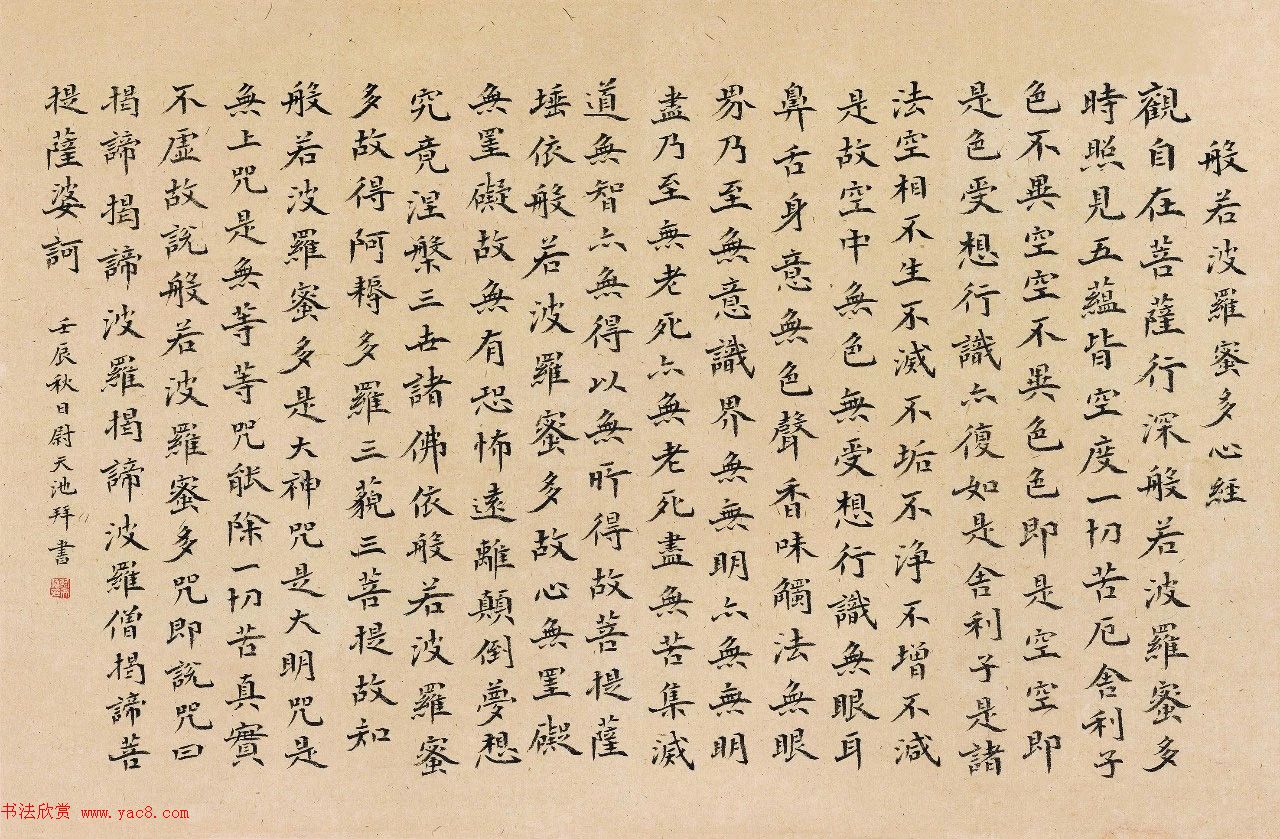 般若波羅蜜多心経
觀自在菩薩行深般若波羅蜜多
時照見五蘊皆空度一切苦厄舍利子
色不異空空不異色色即是空空即
是色受想行識亦復如是舍利子是諸
法空相不生不滅不垢不淨不增不減
是故空中無色無受想行識無眼耳
鼻舌身意無色聲香味觸法無眼
界乃至無意識界無無明亦無無明
盡乃至無老死亦無老死盡無苦集滅
道無智亦無得以無所得故菩提薩
埵依般若波羅蜜多故心無罣礙
無罣礙故無有恐怖遠離顛倒夢想
究竟涅槃三世諸佛依般若波羅蜜
多故得阿耨多羅三藐三菩提故知
般若波羅蜜多是大神咒是大明咒是
無上咒是無等等咒能除一切苦真實
不虛故說般若波羅蜜多咒即說咒曰
揭諦揭諦波羅揭諦波羅僧揭諦菩
提薩婆訶
壬辰秋日尉天池拜書
书法欣赏 www.yac8.com